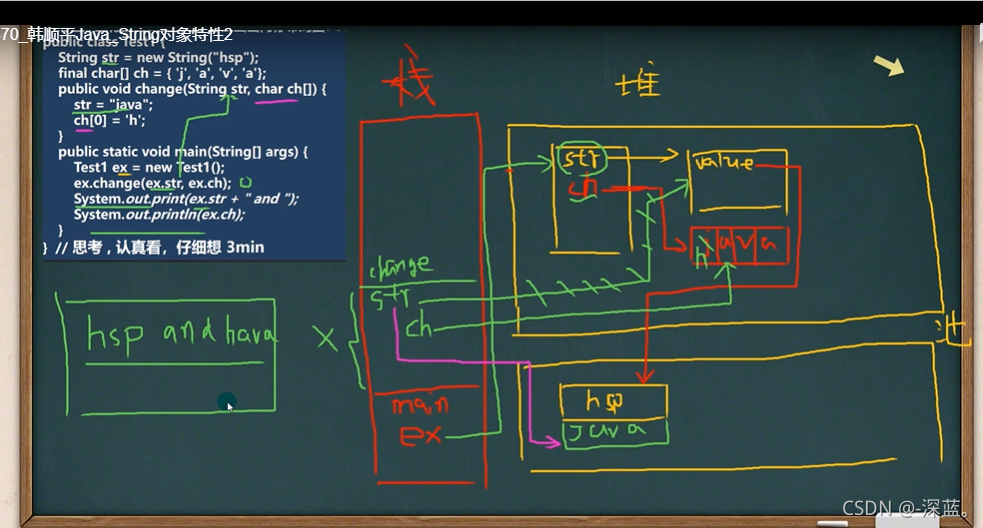 70_韩顺平Java_String对象特性2
public class Test1 {
String str = new String("hsp");
final char[] ch = { 'j', 'a', 'v', 'a'};
public void change(String str, char ch[]) {
str = "java";
ch[0] = 'h';
}
public static void main(String[] args) {
Test1 ex = new Test1();
ex.change(ex.str, ex.ch);
System.out.print(ex.str + " and ");
System.out.println(ex.ch);
}
} // 思考 , 认真看，仔细想 3min
栈
堆
str
ch
value
h a v a
change
str
ch
main
ex
hsp
java
hsp and hava
CSDN @-深蓝。